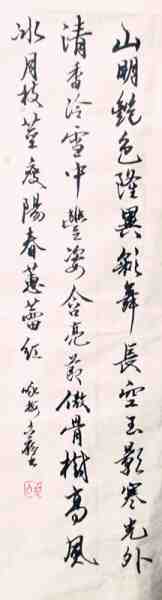 山明艷色隆異彩舞長空玉影寒光外
清香冷雪中豐姿含亮節傲骨樹高風
冰月枝莖瘦陽春蕙蕾紅 咏梅